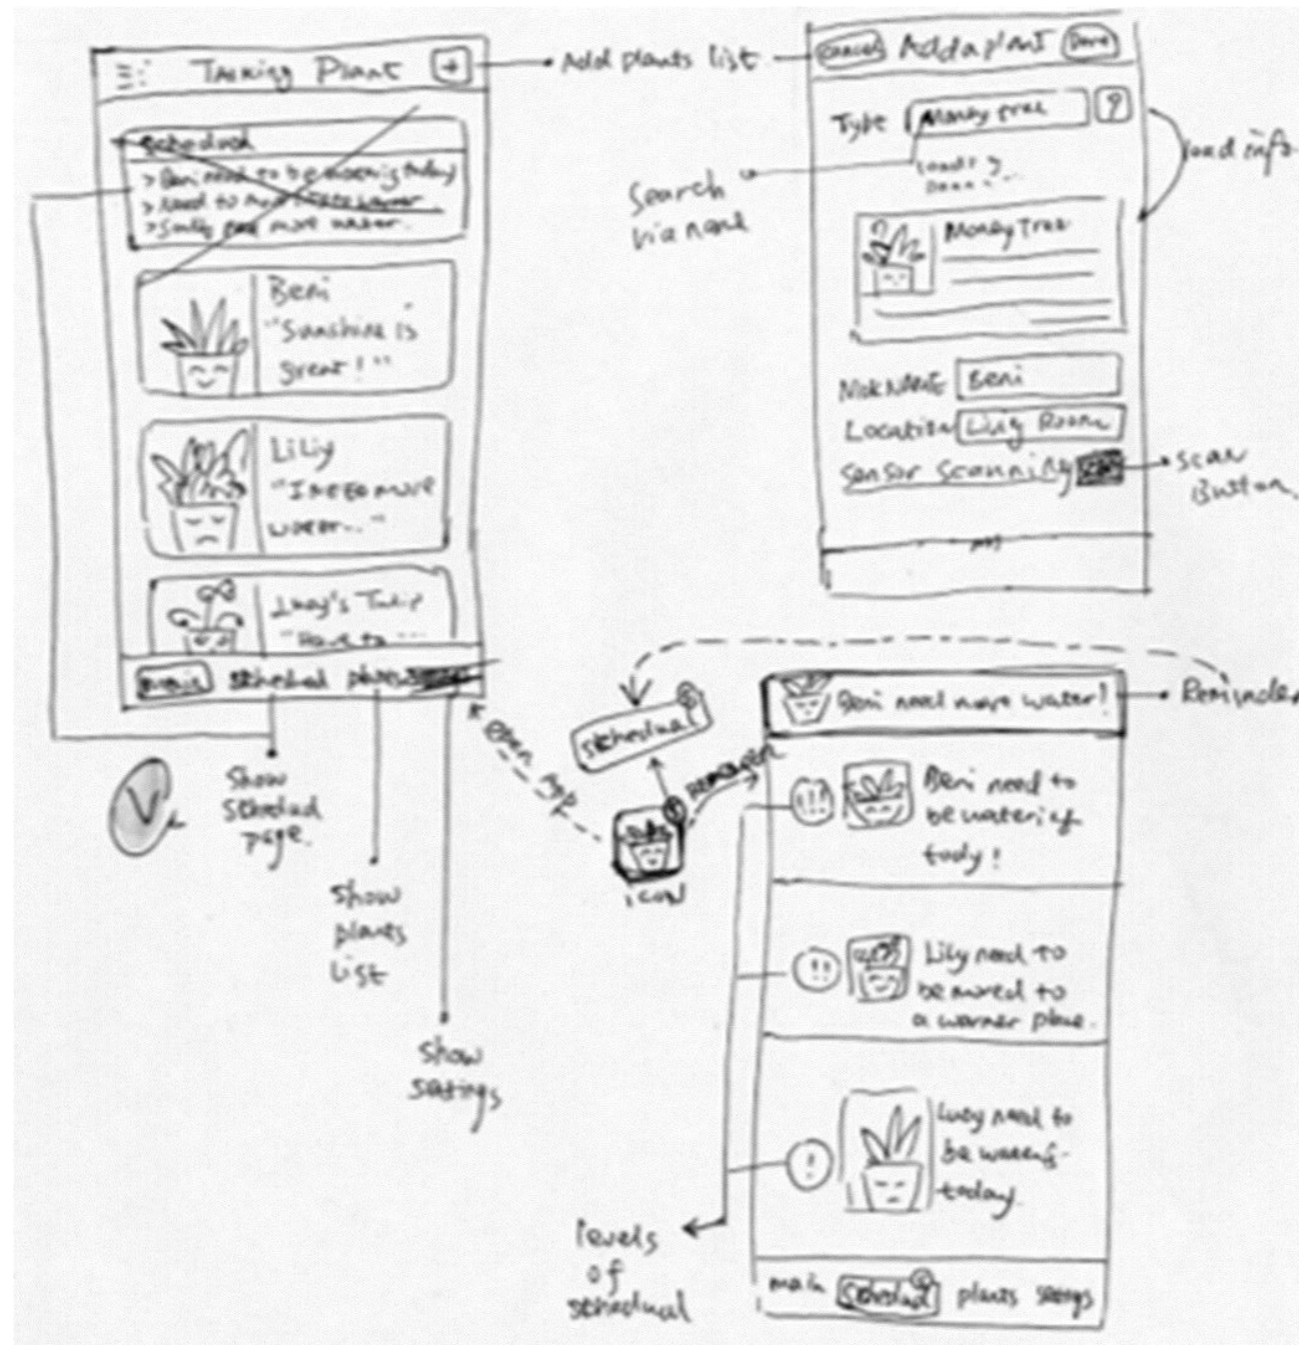 Talking Plant +
schedual
> Beni need to be watering today
> need to
> more water.
Beni
"Sunshine is
great!"
LiLiy
"I need more
water..."
"Have to ...
main schedual plants
Show
schedual
page.
Show
plants
List
Show
settings
V
Add plants list
Cancel Add a plant Done
Type Money tree ?
Loading
Search
via name
load info
Money Tree
NickNAME Beni
Location Living Room
Sensor Scanning
Scan
Button
open app
schedual
Reminder
icon
Beni need more water!
Reminder
!!! Beni need to
be watering
today!
!! Lily need to
be moved to
a warmer place.
! Lucy need to
be watering
today.
levels
of
schedual
main schedual plants settings